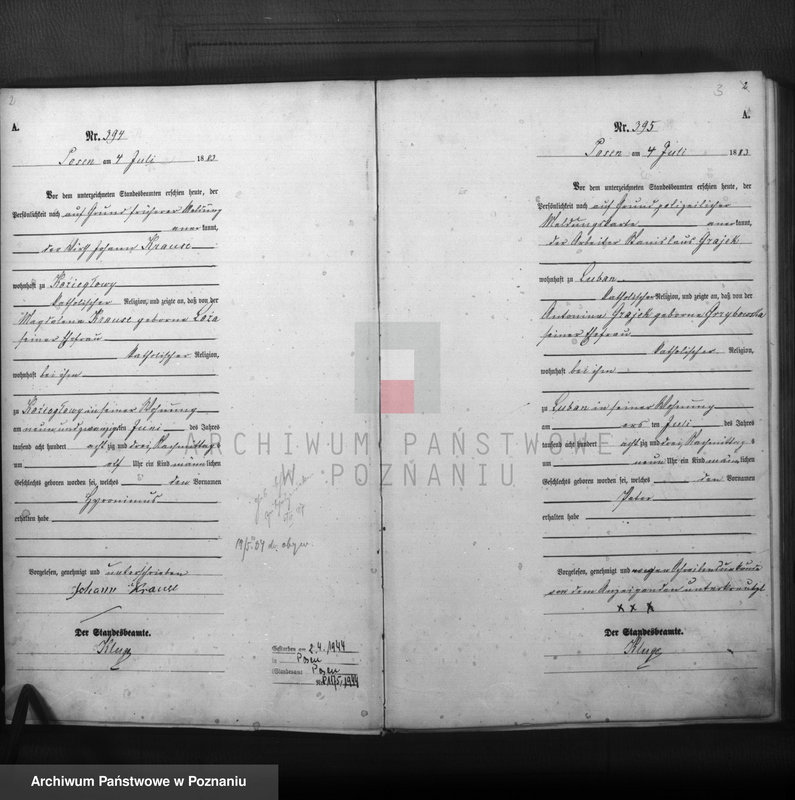 2
A.
Nr. 394
Posen am 4 Juli 1883
Vor dem unterzeichneten Standesbeamten erschien heute, der
Persönlichkeit nach auf Grund früherer Meldung
anerkannt,
der Wirth Johann Krause
wohnhaft zu Koziegłowy
katholischer Religion, und zeigte an, daß von der
Magdalena Krause geborne Loza
seiner Ehefrau
katholischer Religion,
wohnhaft bei ihm
zu Koziegłowy in seiner Wohnung
am neunundzwanzigsten Juni des Jahres
tausend acht hundert achtzig und drei Nachmittags
um Uhr ein Kind männlichen
Geschlechts geboren worden sei, welches den Vornamen
Hyronimus
erhalten habe
Vorgelesen, genehmigt und unterschrieben
Johann Krause
Der Standesbeamte.
Kluge
19/5. 34
Gestorben am 2.4.1944
in Posen
(Standesamt Posen
Nr. 1175/1944
3 2
A.
Nr. 395
Posen am 4 Juli 1883
Vor dem unterzeichneten Standesbeamten erschien heute, der
Persönlichkeit nach auf Grund polizeilicher
Meldungskarte anerkannt,
der Arbeiter Stanislaus Grajek
wohnhaft zu Luban
katholischer Religion, und zeigte an, daß von der
Antonina Grajek geborne Grzybowska
seiner Ehefrau
katholischer Religion,
wohnhaft bei ihm
zu Luban in seiner Wohnung
am ersten Juli des Jahres
tausend acht hundert achtzig und drei Nachmittags
um neun Uhr ein Kind männlichen
Geschlechts geboren worden sei, welches den Vornamen
Peter
erhalten habe
Vorgelesen, genehmigt und wegen Schreibensunkunde
von dem Anzeigenden unterkreuzt
x x x
Der Standesbeamte.
Kluge
ARCHIWUM PAŃSTWOWE
W POZNANIU
Archiwum Państwowe w Poznaniu